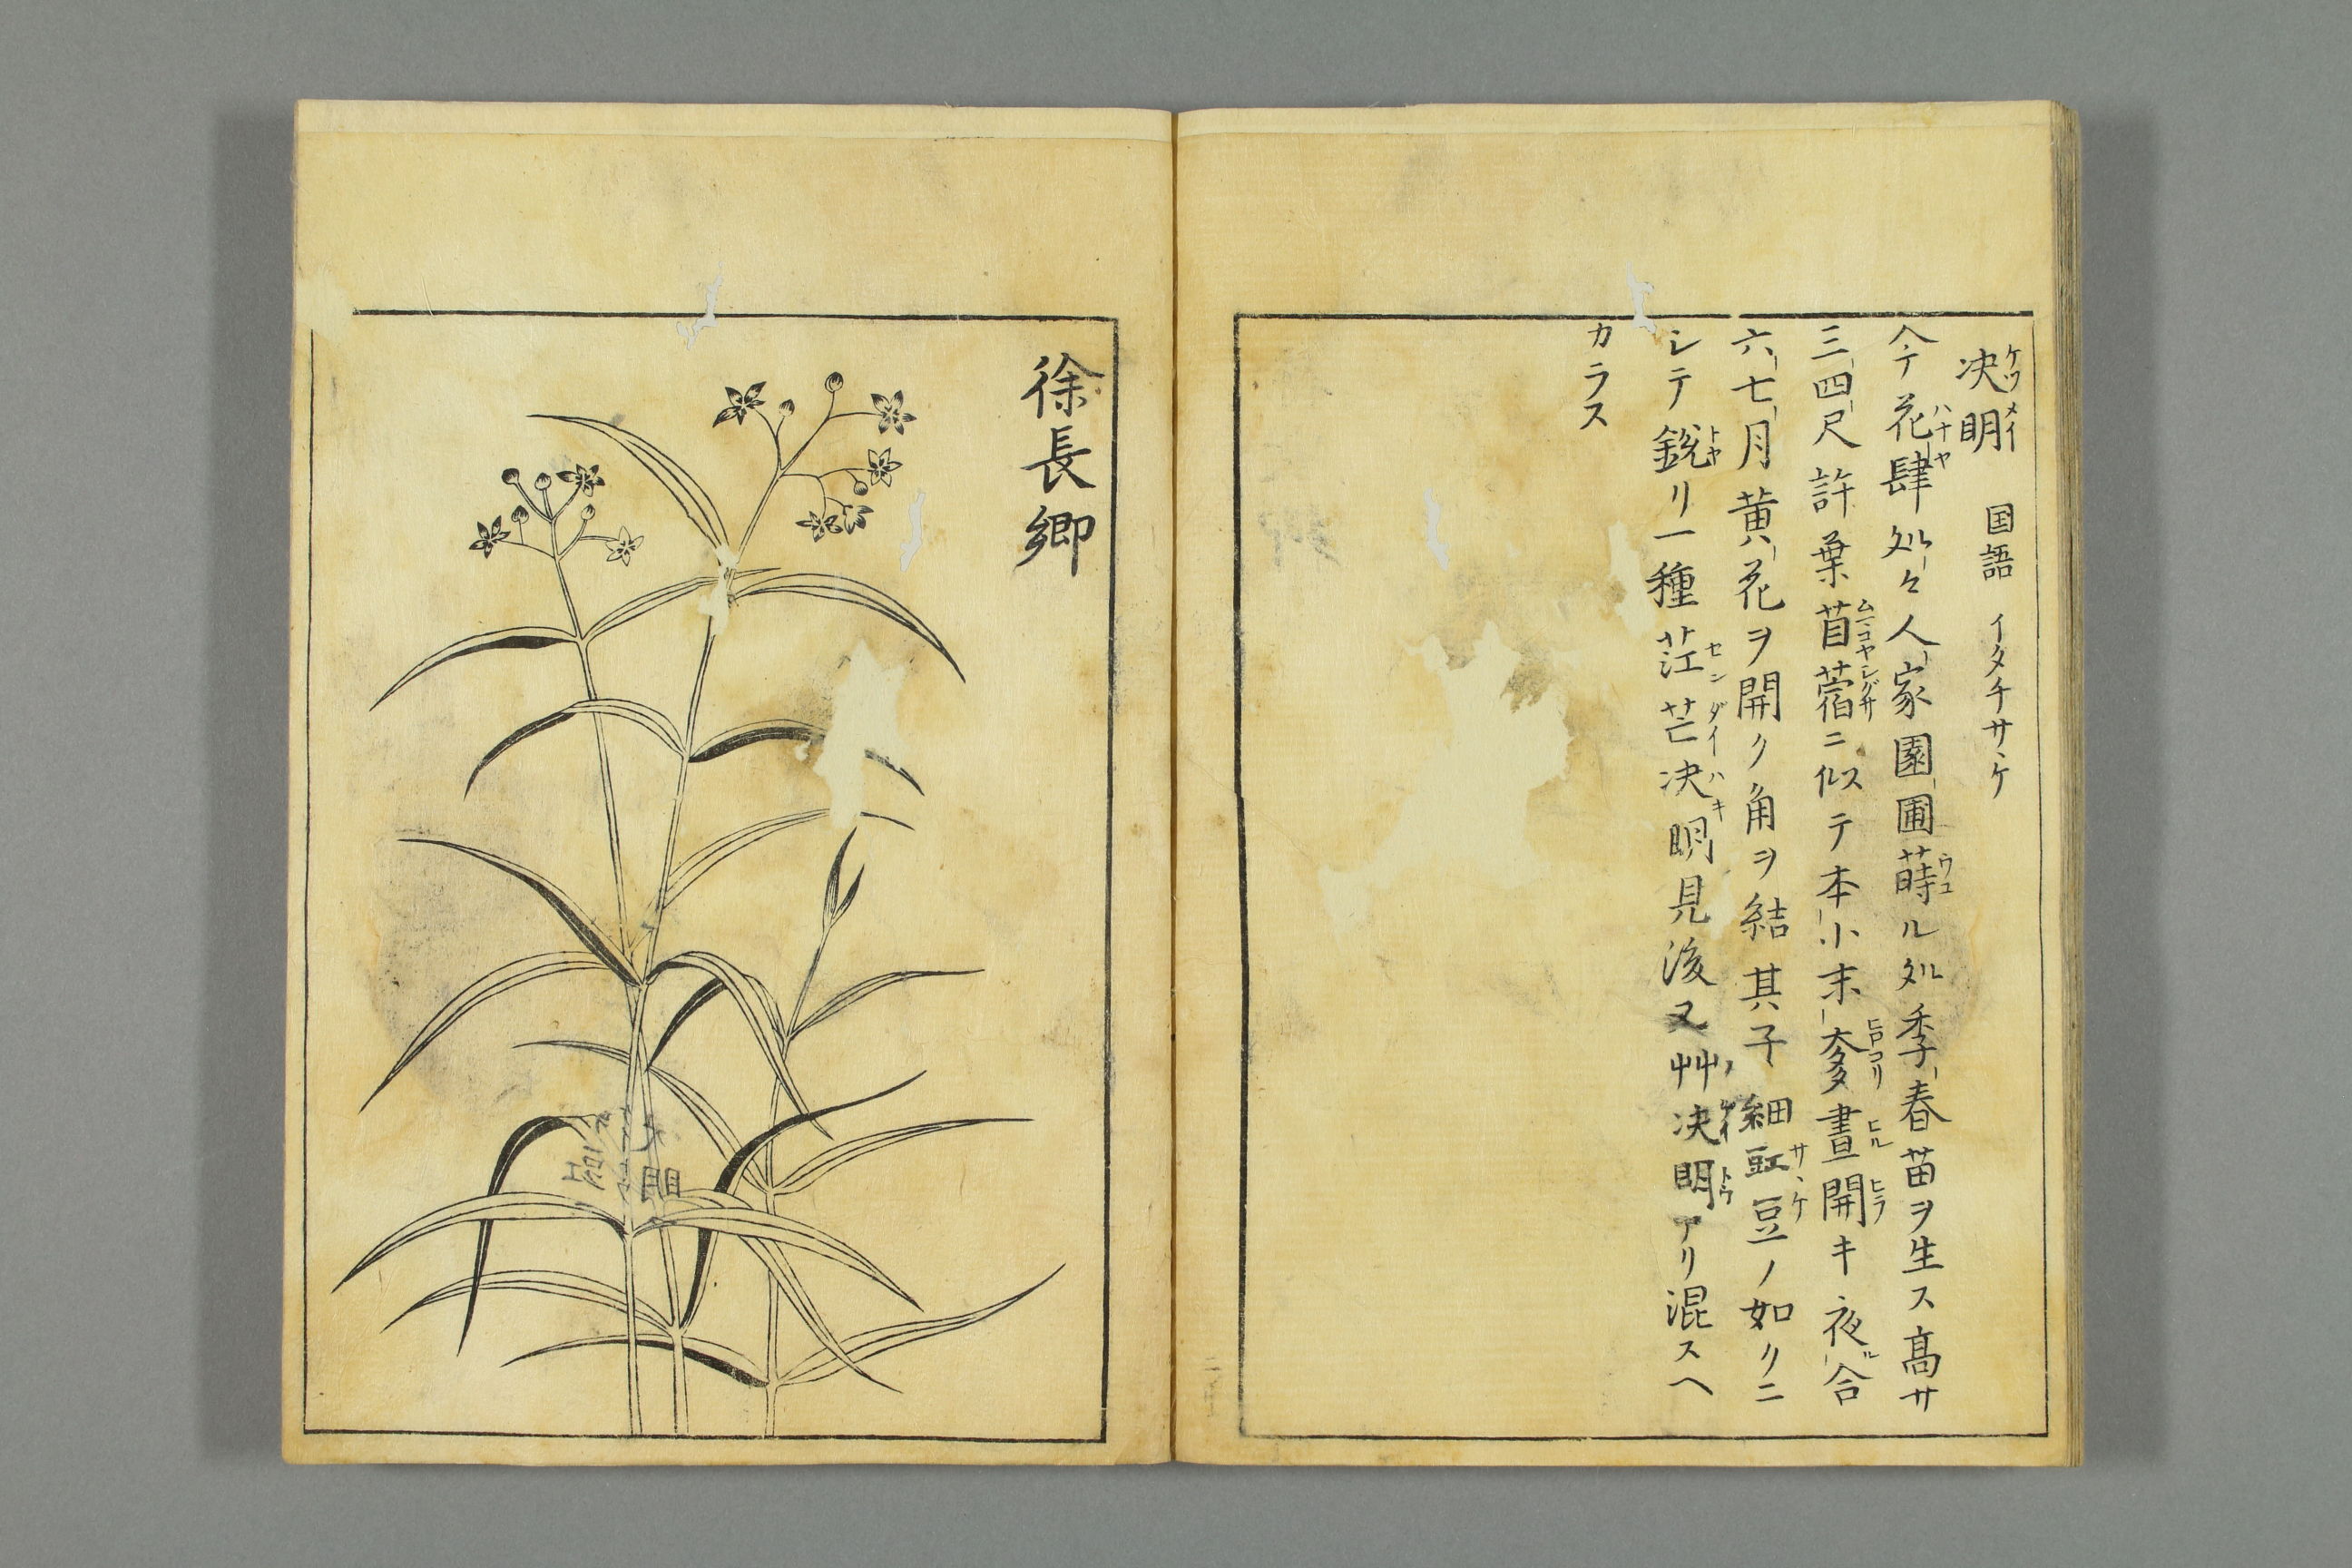 決明 国語 イタチサヽケ
今花肆処々人家園圃蒔ル処季春苗ヲ生ス高サ
三四尺許葉苜蓿ニ似テ本小末奓晝開キ夜合
六七月黄花ヲ開ク角ヲ結其子細豇豆ノ如クニ
シテ鋭リ一種茳芒決明見後又艸決明アリ混スヘ
カラス
徐長卿